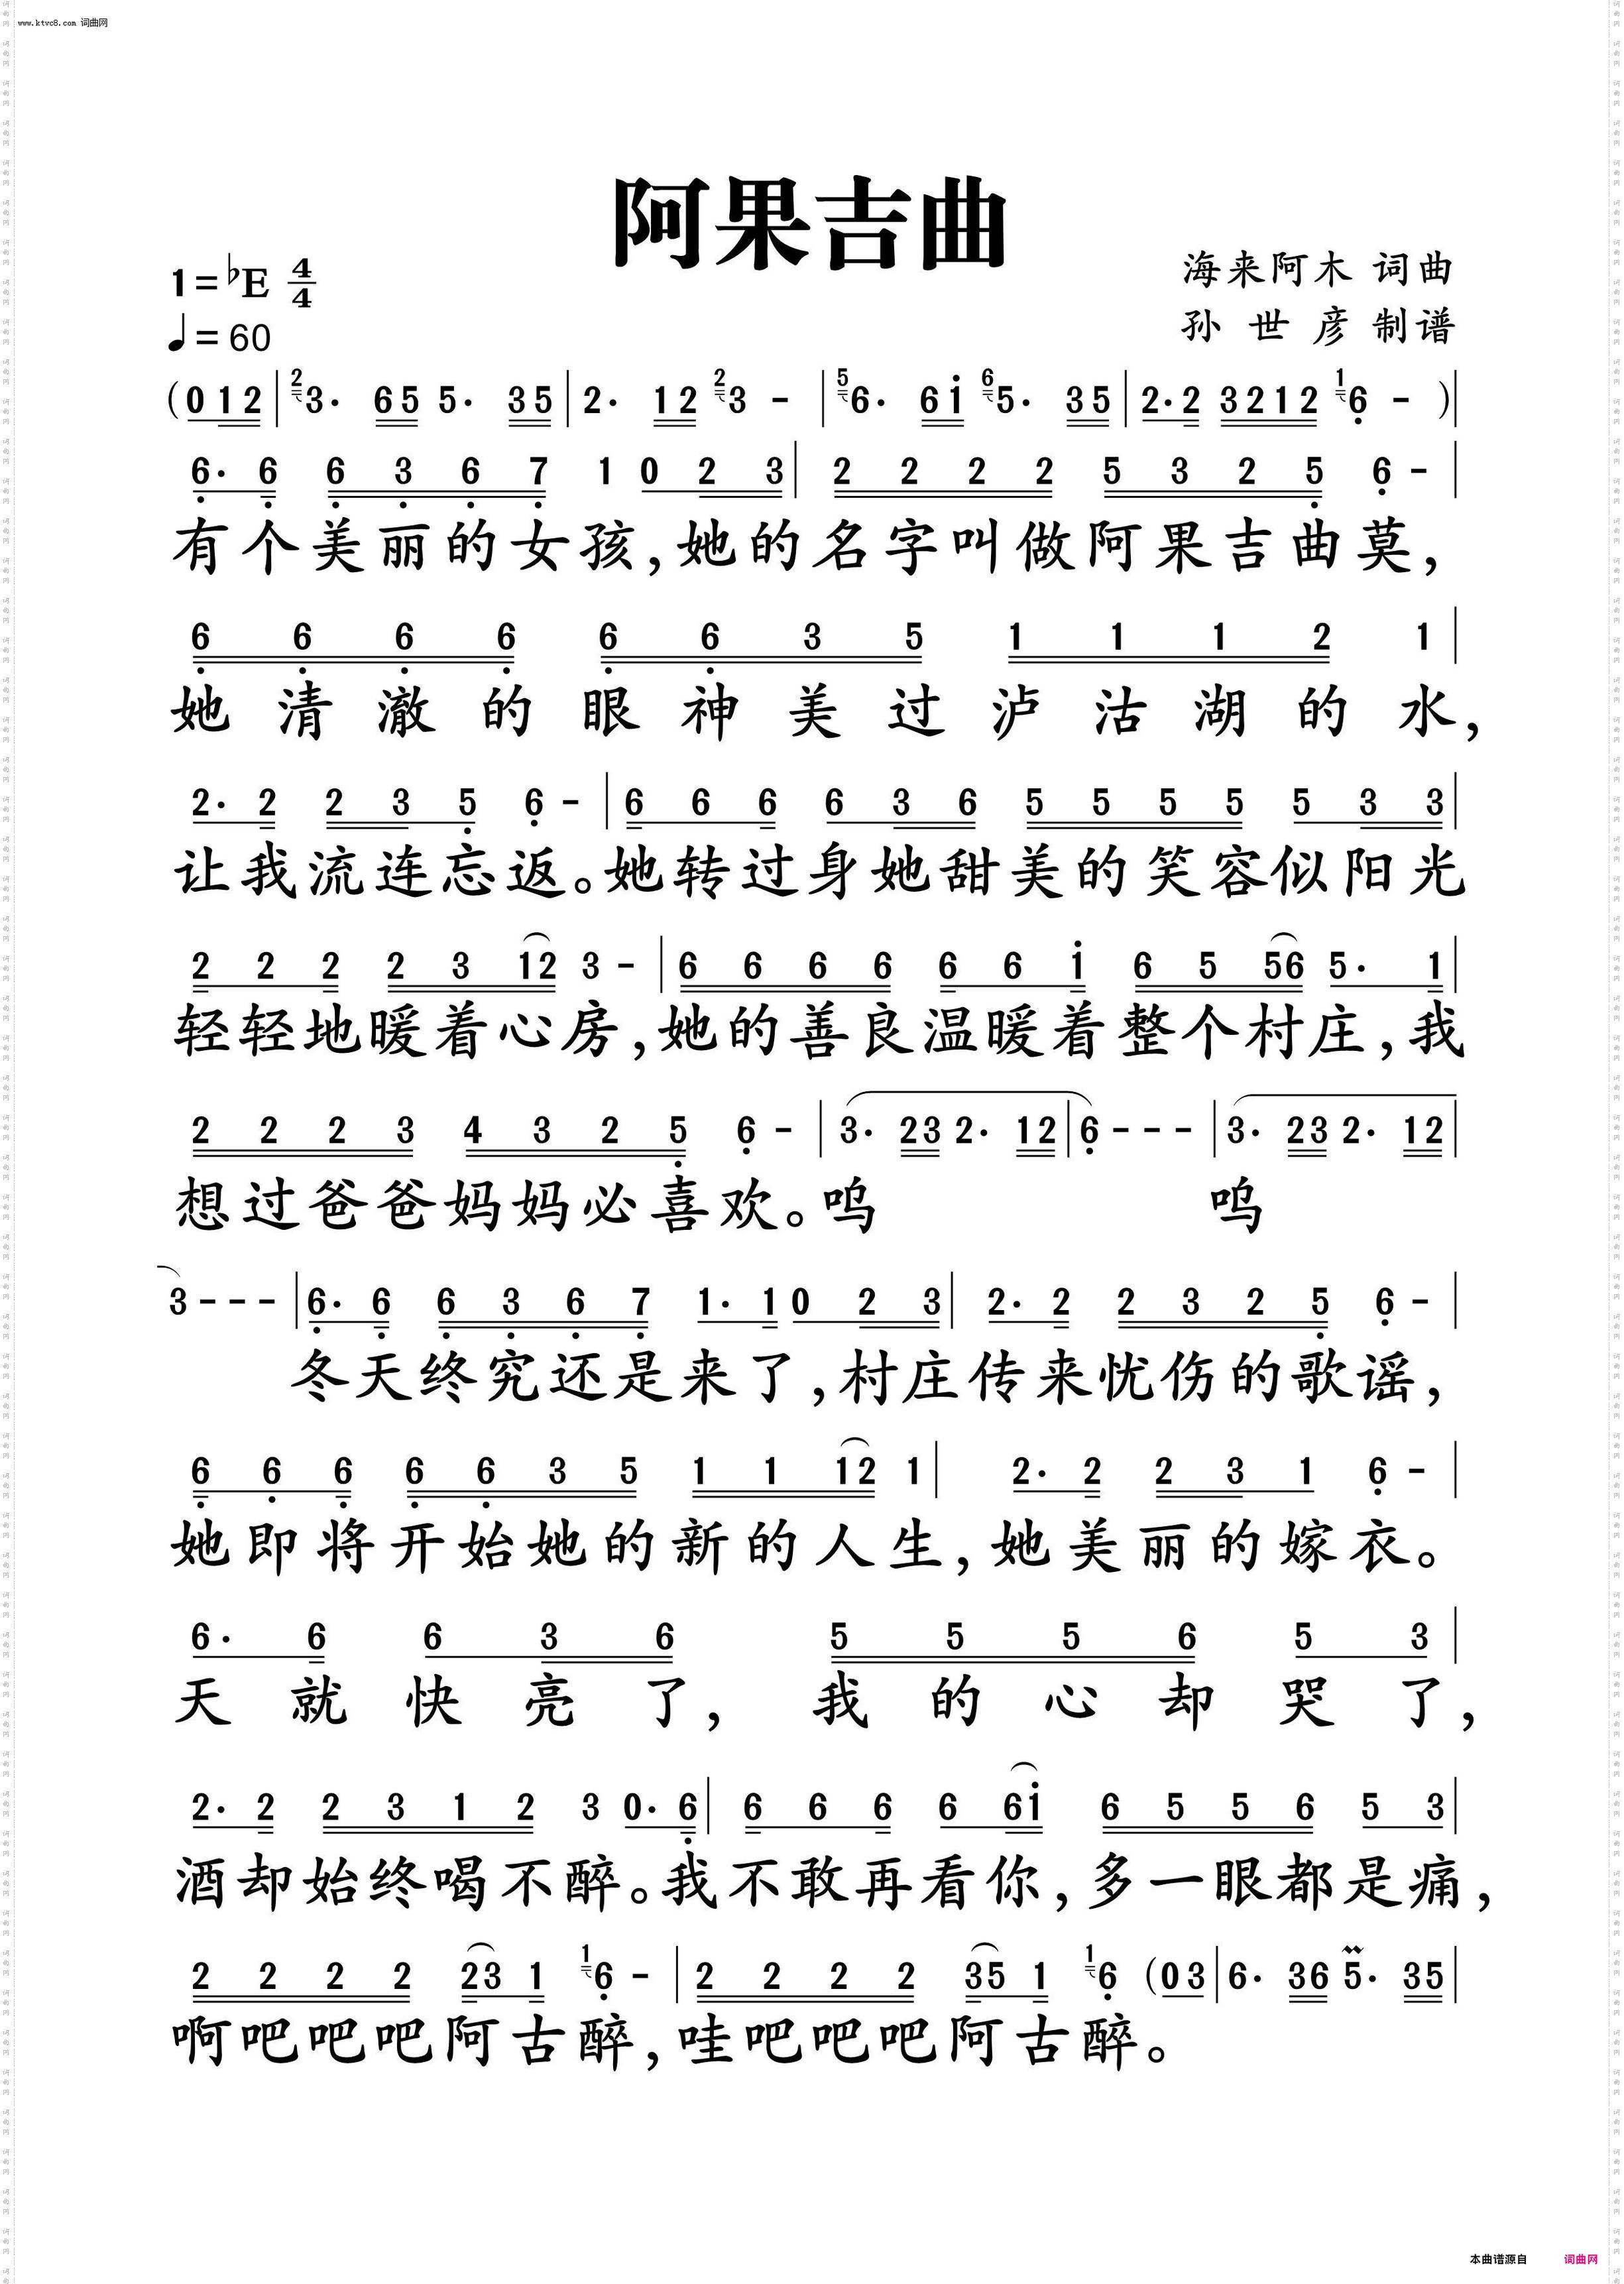 www.ktvc8.com 词曲网
阿果吉曲
1=♭E 4/4
海来阿木 词曲
♩=60
孙世彦制谱
(0 1 2 | 2 3· 6 5 5· 3 5 | 2· 1 2 2 3 - | 5 6· 6 i 6 5· 3 5 | 2· 2 3 2 1 2 1 6 - ) |
6· 6 6 3 6 7 1 0 2 3 | 2 2 2 2 5 3 2 5 6 - |
有个美丽的女孩,她的名字叫做阿果吉曲莫,
6 6 6 6 6 6 3 5 1 1 1 2 1 |
她清澈的眼神美过泸沽湖的水,
2· 2 2 3 5 6 - | 6 6 6 6 3 6 5 5 5 5 5 3 3 |
让我流连忘返。她转过身她甜美的笑容似阳光
2 2 2 2 3 1 2 3 - | 6 6 6 6 6 6 i 6 5 5 6 5· 1 |
轻轻地暖着心房,她的善良温暖着整个村庄,我
2 2 2 3 4 3 2 5 6 - | 3· 2 3 2· 1 2 | 6 - - - | 3· 2 3 2· 1 2 |
想过爸爸妈妈必喜欢。呜 呜
3 - - - | 6· 6 6 3 6 7 1· 1 0 2 3 | 2· 2 2 3 2 5 6 - |
冬天终究还是来了,村庄传来忧伤的歌谣,
6 6 6 6 6 3 5 1 1 1 2 1 | 2· 2 2 3 1 6 - |
她即将开始她的新的人生,她美丽的嫁衣。
6· 6 6 3 6 5 5 5 6 5 3 |
天就快亮了,我的心却哭了,
2· 2 2 3 1 2 3 0· 6 | 6 6 6 6 6 i 6 5 5 6 5 3 |
酒却始终喝不醉。我不敢再看你,多一眼都是痛,
2 2 2 2 2 3 1 1 6 - | 2 2 2 2 3 5 1 1 6 (0 3 | 6· 3 6 5· 3 5 |
啊吧吧吧阿古醉,哇吧吧吧阿古醉。
本曲谱源自 词曲网